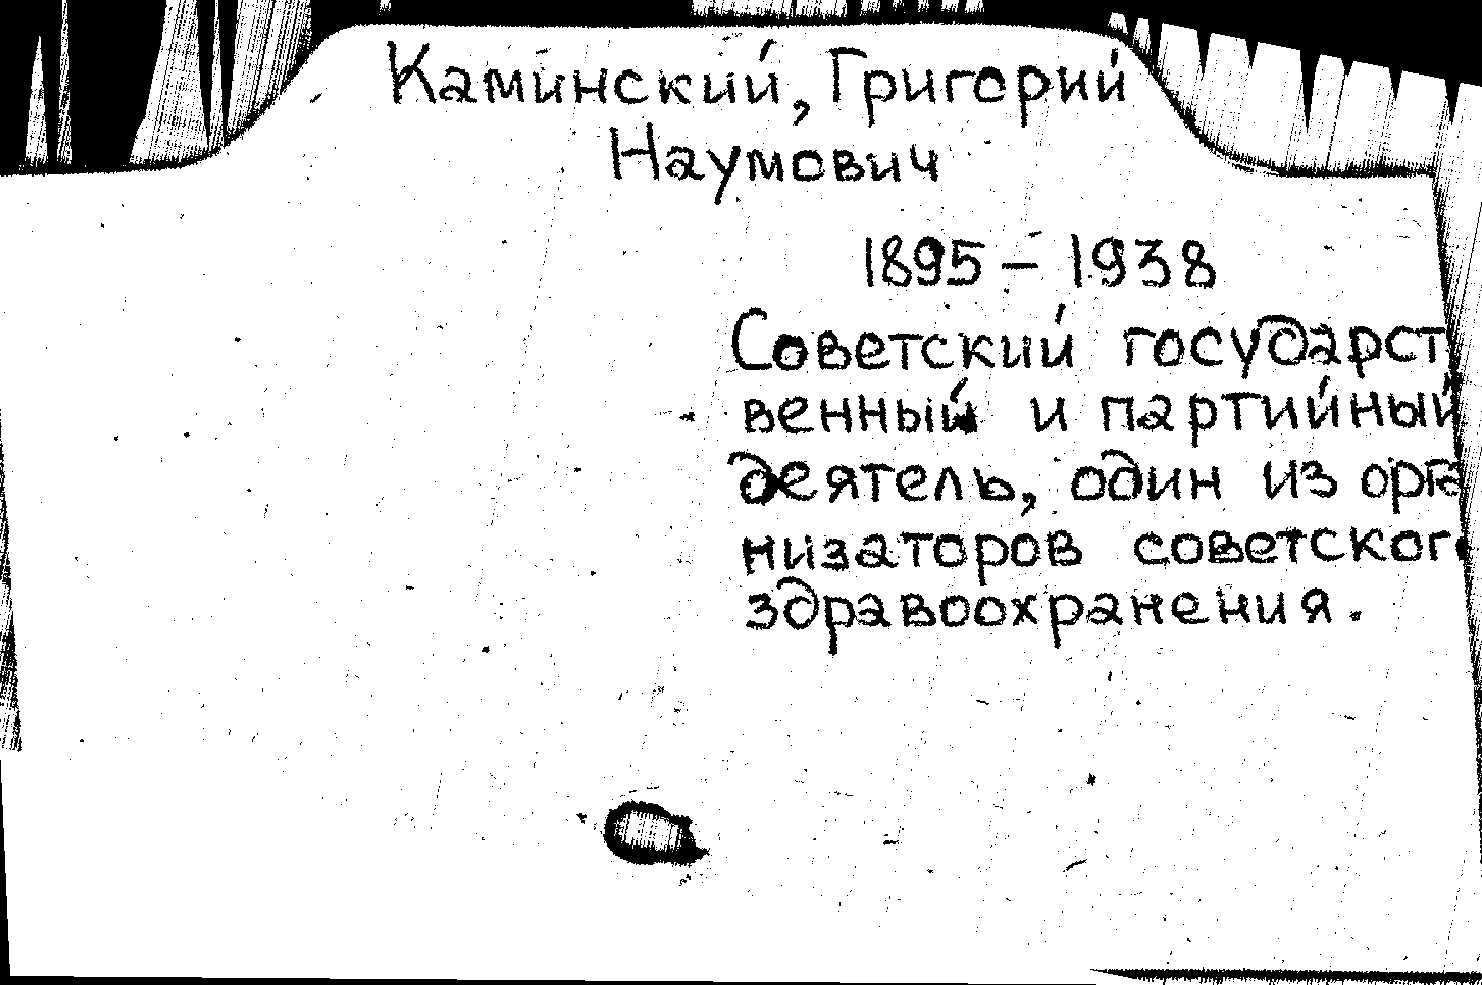 Каминский, Григорий
Наумович
1895 – 1938
Советский государст
венный и партийный
деятель, один из орга
низаторов советского
здравоохранения.